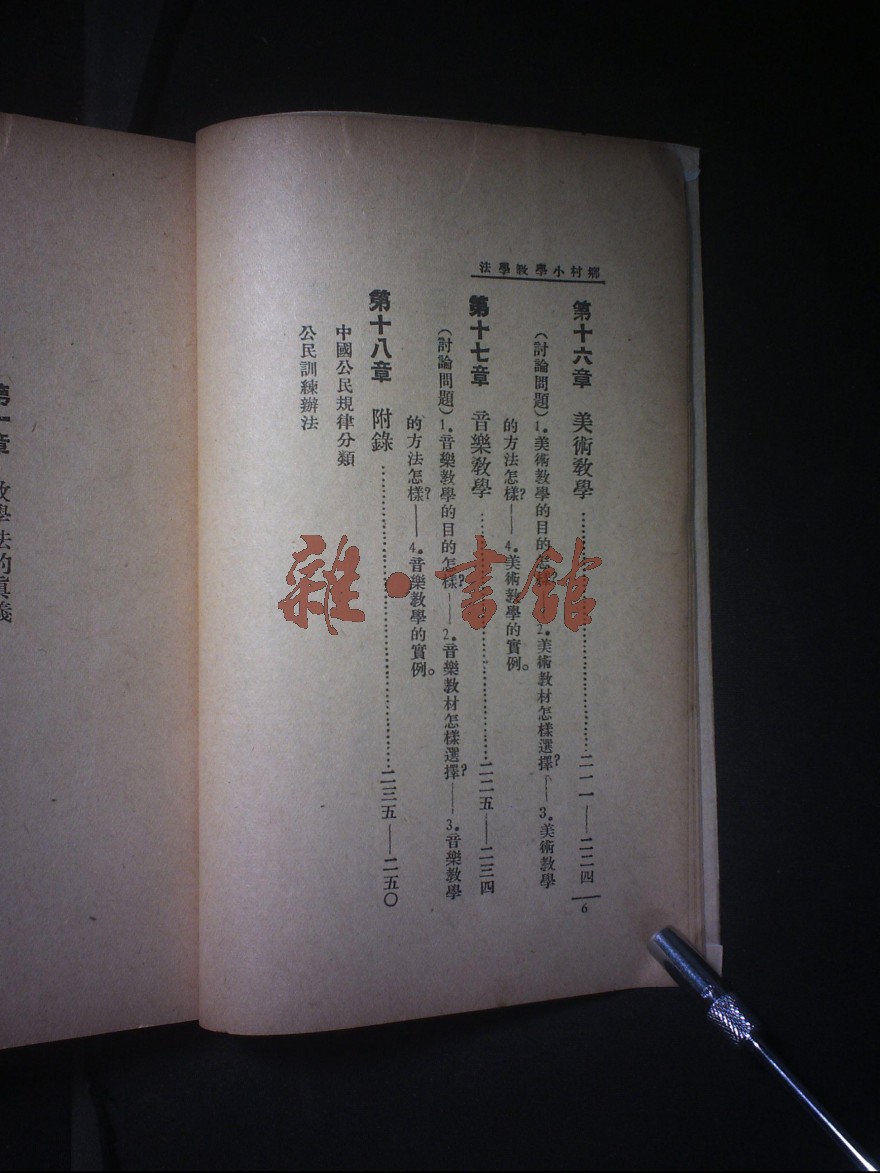 鄉村小學教學法
第十六章 美術教學……二一一——二二四
(討論問題)1.美術教學的目的怎樣?——2.美術教材怎樣選擇?——3.美術教學
的方法怎樣?——4.美術教學的實例。
第十七章 音樂教學……二二五——二三四
(討論問題)1.音樂教學的目的怎樣?——2.音樂教材怎樣選擇?——3.音樂教學
的方法怎樣?——4.音樂教學的實例。
第十八章 附錄……二三五——二五〇
中國公民規律分類
公民訓練辦法
6
第一章 教學法的真義
雜·書館